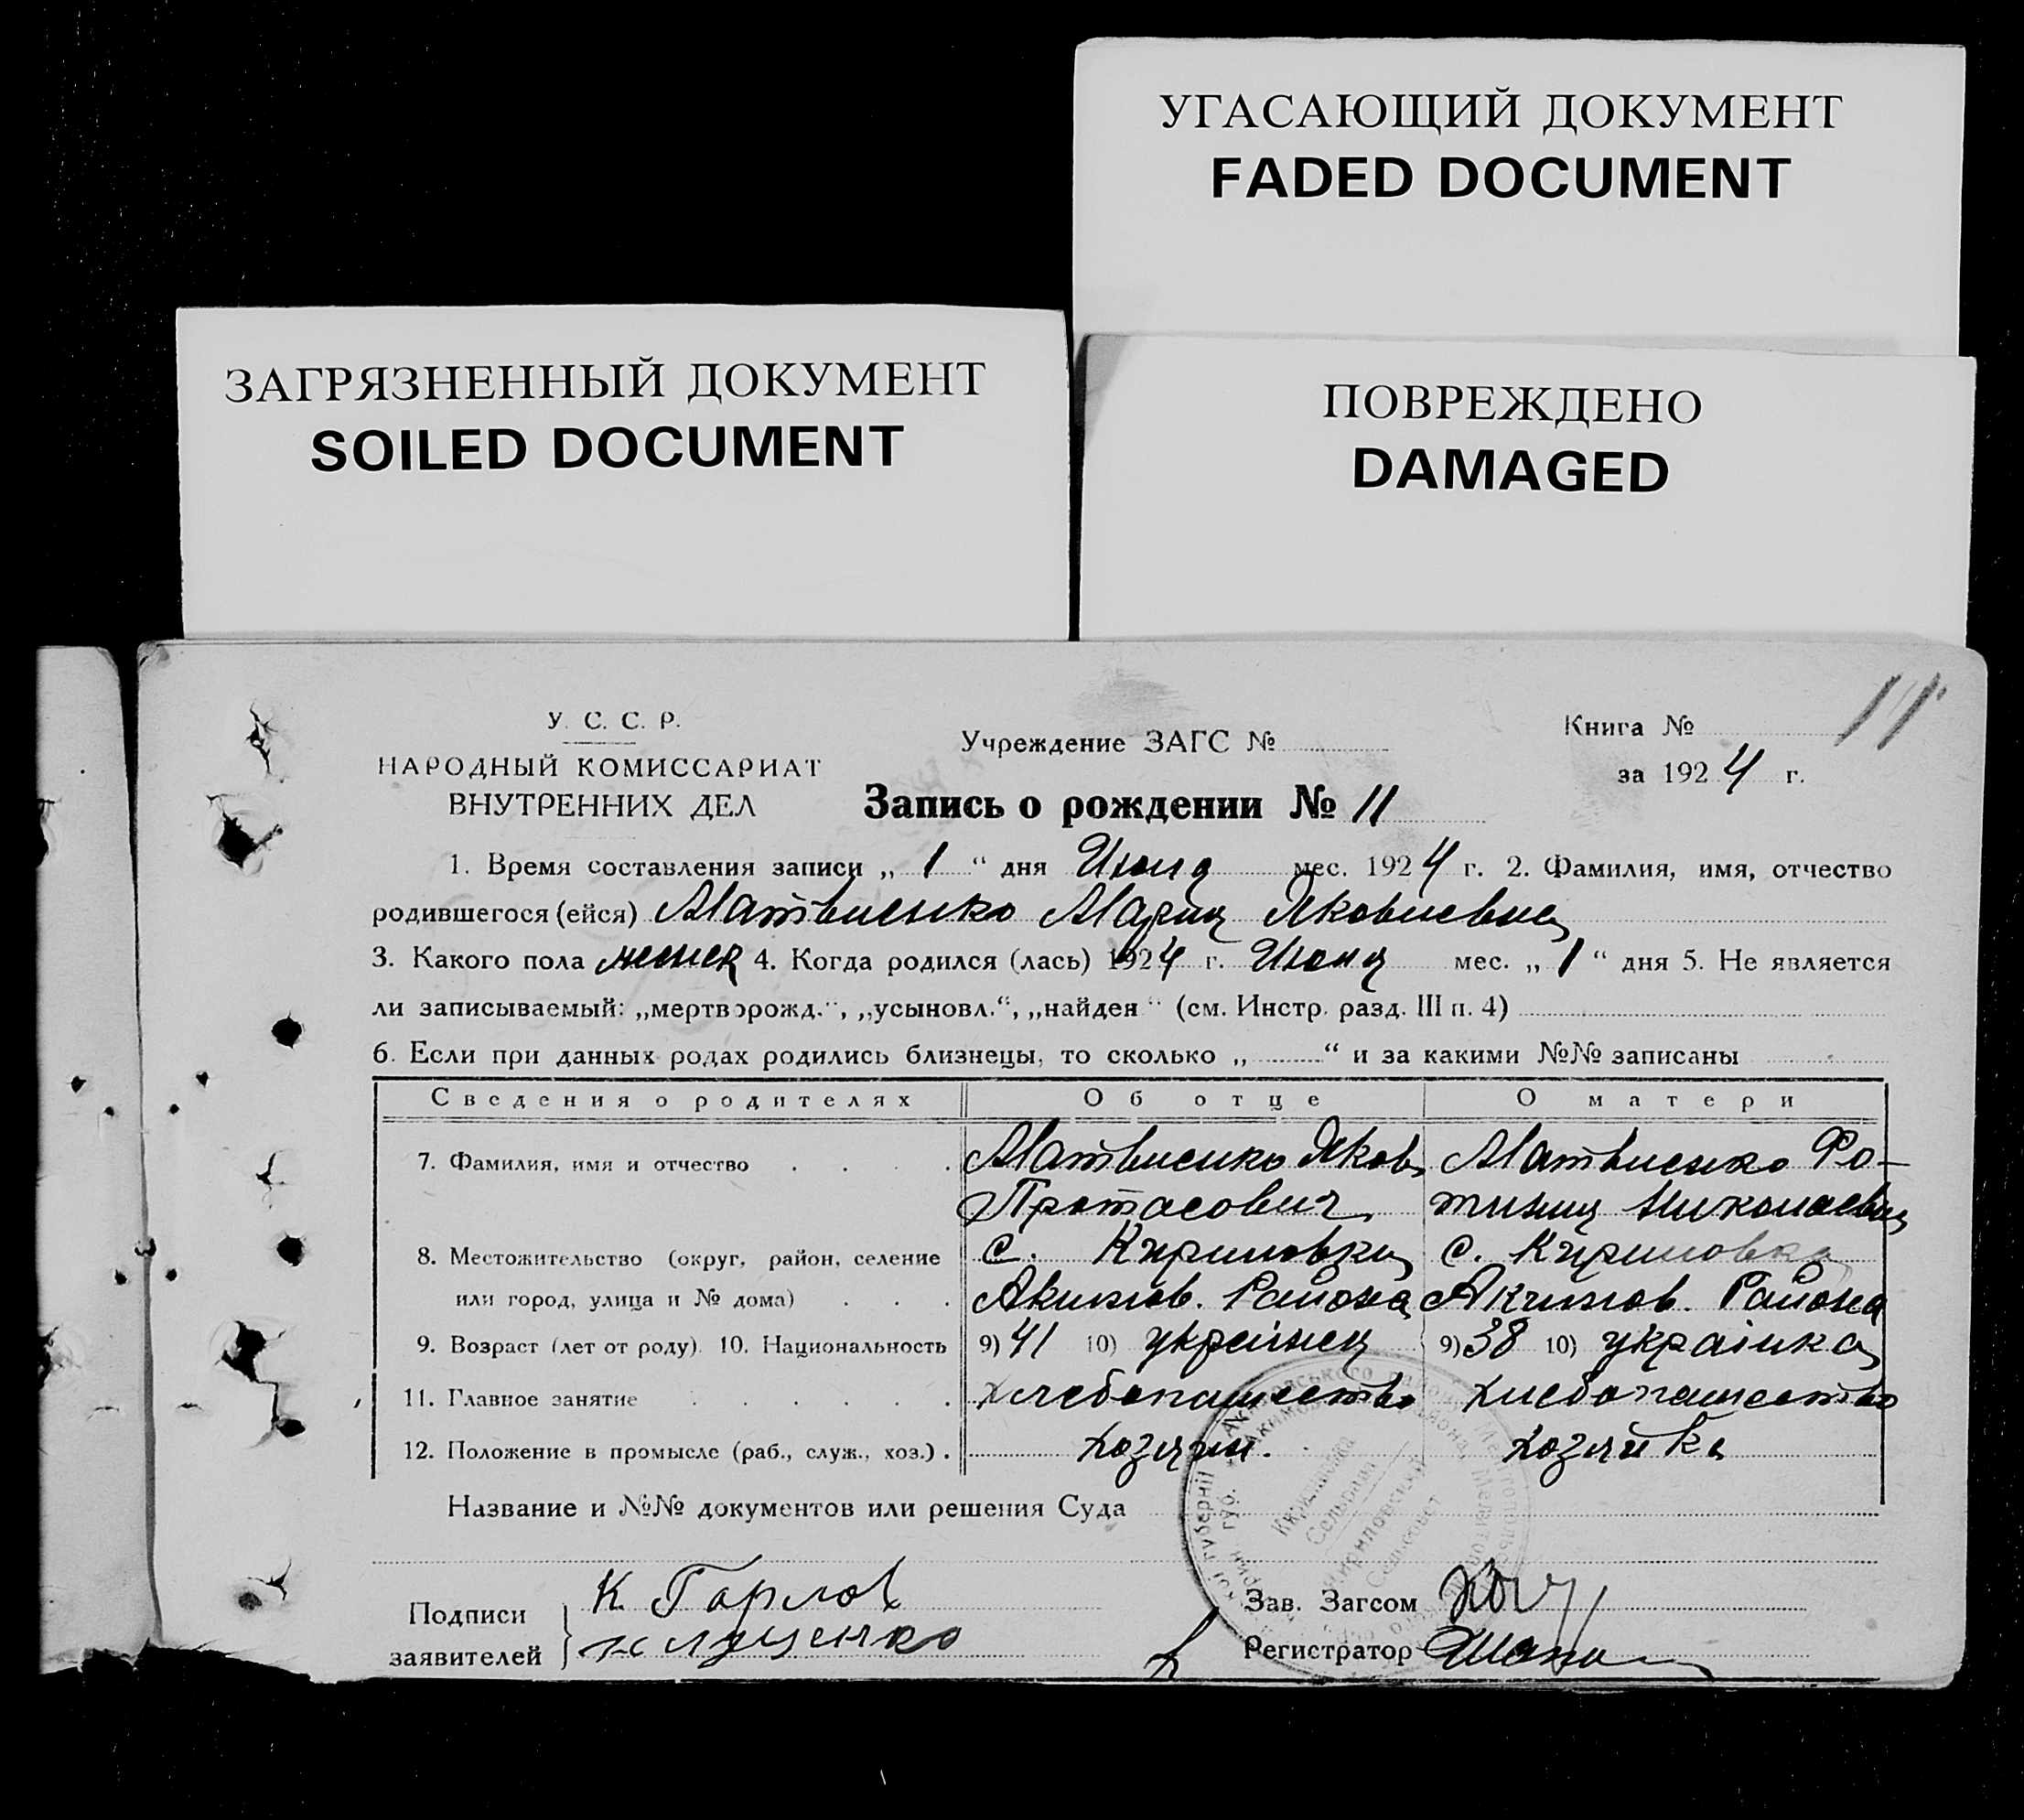 УГАСАЮЩИЙ ДОКУМЕНТ
FADED DOCUMENT
ЗАГРЯЗНЕННЫЙ ДОКУМЕНТ
SOILED DOCUMENT
ПОВРЕЖДЕНО
DAMAGED
11
У. С. С. Р.
НАРОДНЫЙ КОМИССАРИАТ
ВНУТРЕННИХ ДЕЛ
Учреждение ЗАГС №
Книга №
за 1924 г.
Запись о рождении № 11
1. Время составления записи „ 1 “ дня Июня мес. 1924 г. 2. Фамилия, имя, отчество
родившегося (ейся) Матвиенко Мария Яковлевна
3. Какого пола женск 4. Когда родился (лась) 1924 г. Июня мес. „ 1 “ дня 5. Не является
ли записываемый: „мертворожд.“, „усыновл.“, „найден“ (см. Инстр. разд. III п. 4)
6. Если при данных родах родились близнецы, то сколько „ “ и за какими №№ записаны
Сведения о родителях Об отце О матери
7. Фамилия, имя и отчество Матвиенко Яков Матвиенко Фо-
Протасович тиния Николаевна
8. Местожительство (округ, район, селение с. Кириловка с. Кириловка
или город, улица и № дома) Акимов. Района Акимов. Района
9. Возраст (лет от роду). 10. Национальность 9) 41 10) украинец 9) 38 10) украінка
11. Главное занятие хлебопашество хлебопашество
12. Положение в промысле (раб., служ., хоз.) хозяин. хозяйка
Название и №№ документов или решения Суда
Подписи
заявителей
К Горлов
Зав. Загсом
Регистратор